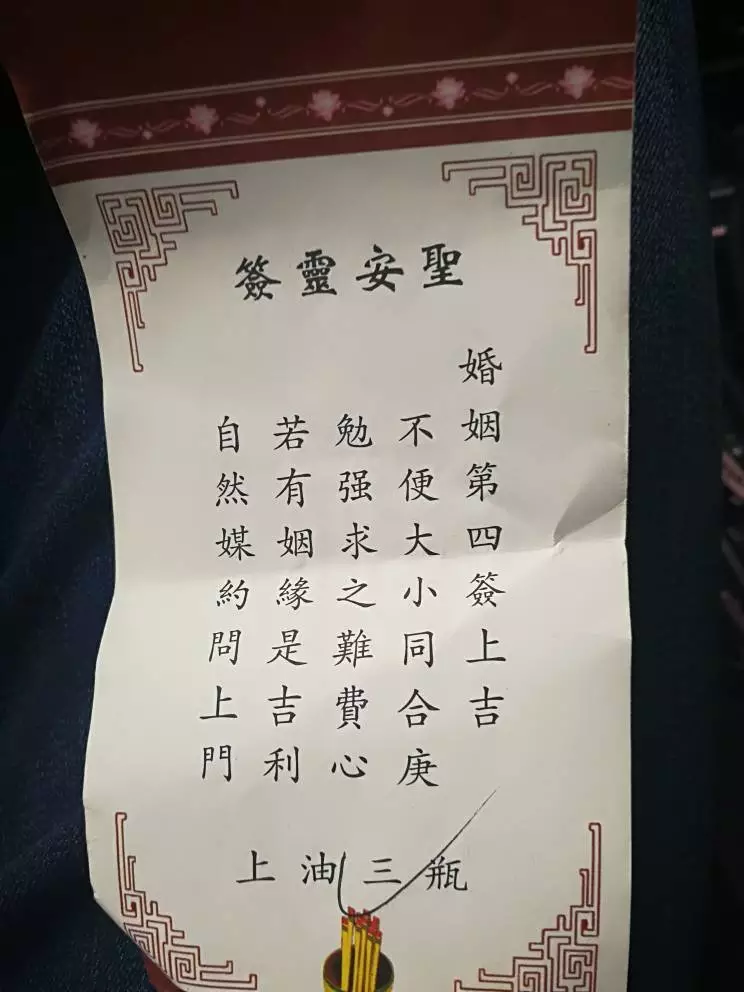 聖安靈簽
婚姻第四簽上吉
不便大小同合庚
勉强求之難費心
若有姻緣是吉利
自然媒約問上門
上油三瓶